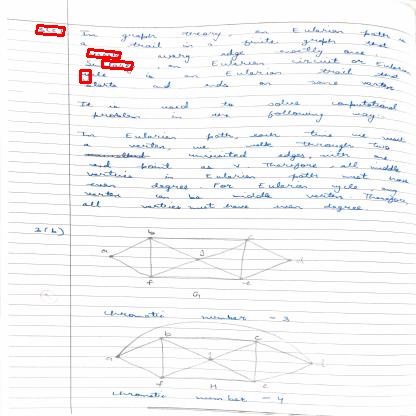 In graph theory, an Eularian path is
a trail in a finite graph that
every edge exactly once.
an Eularian circuit or Eularian
is an Eularian trail that
starts and ends on same vertex
It is used to solve computational
problem in the following way:
In Eularian path, each time we visit
a vertex, we walk through two
unvisited edges, with one
end point as v. Therefore, all middle
vertices in Eularian path must have
even degree. For Eularian cycle, any
vertex can be middle vertex. Therefore,
all vertices must have even degree.
2(b)
b c
a g d
f e
G
chromatic number = 3
b c
a d
f H e
chromatic number = 4